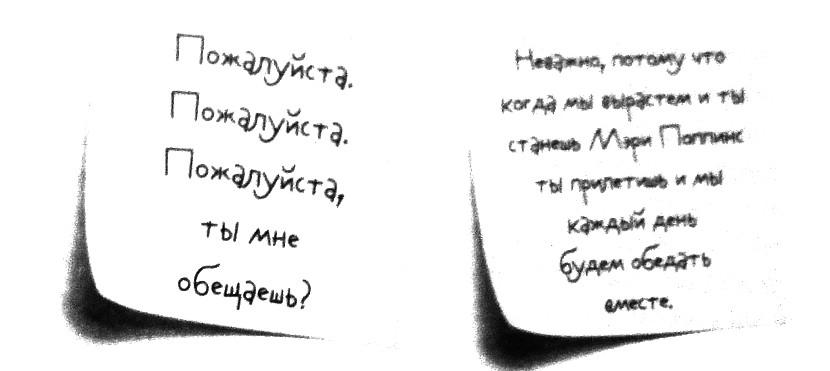 Пожалуйста.
Пожалуйста.
Пожалуйста,
ты мне
обещаешь?
Неважно, потому что
когда мы вырастем и ты
станешь Мэри Поппинс
ты прилетишь и мы
каждый день
будем обедать
вместе.